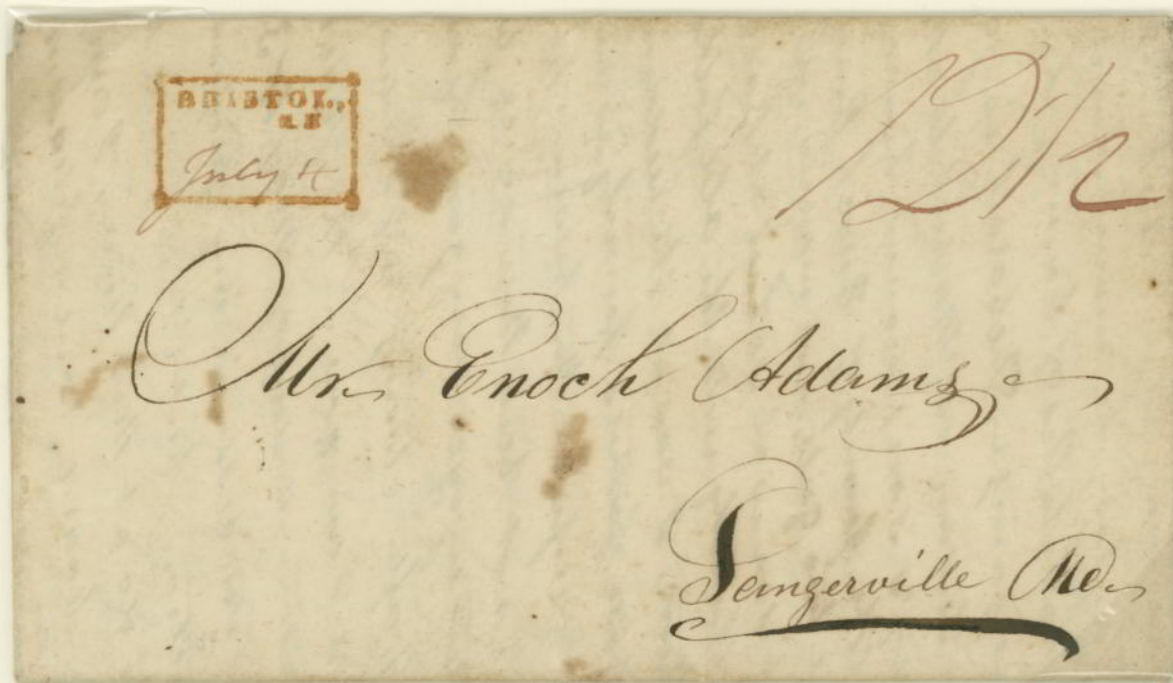 BRISTOL,
July 4
12 1/2
Mr. Enoch Adams
Sangerville Me.